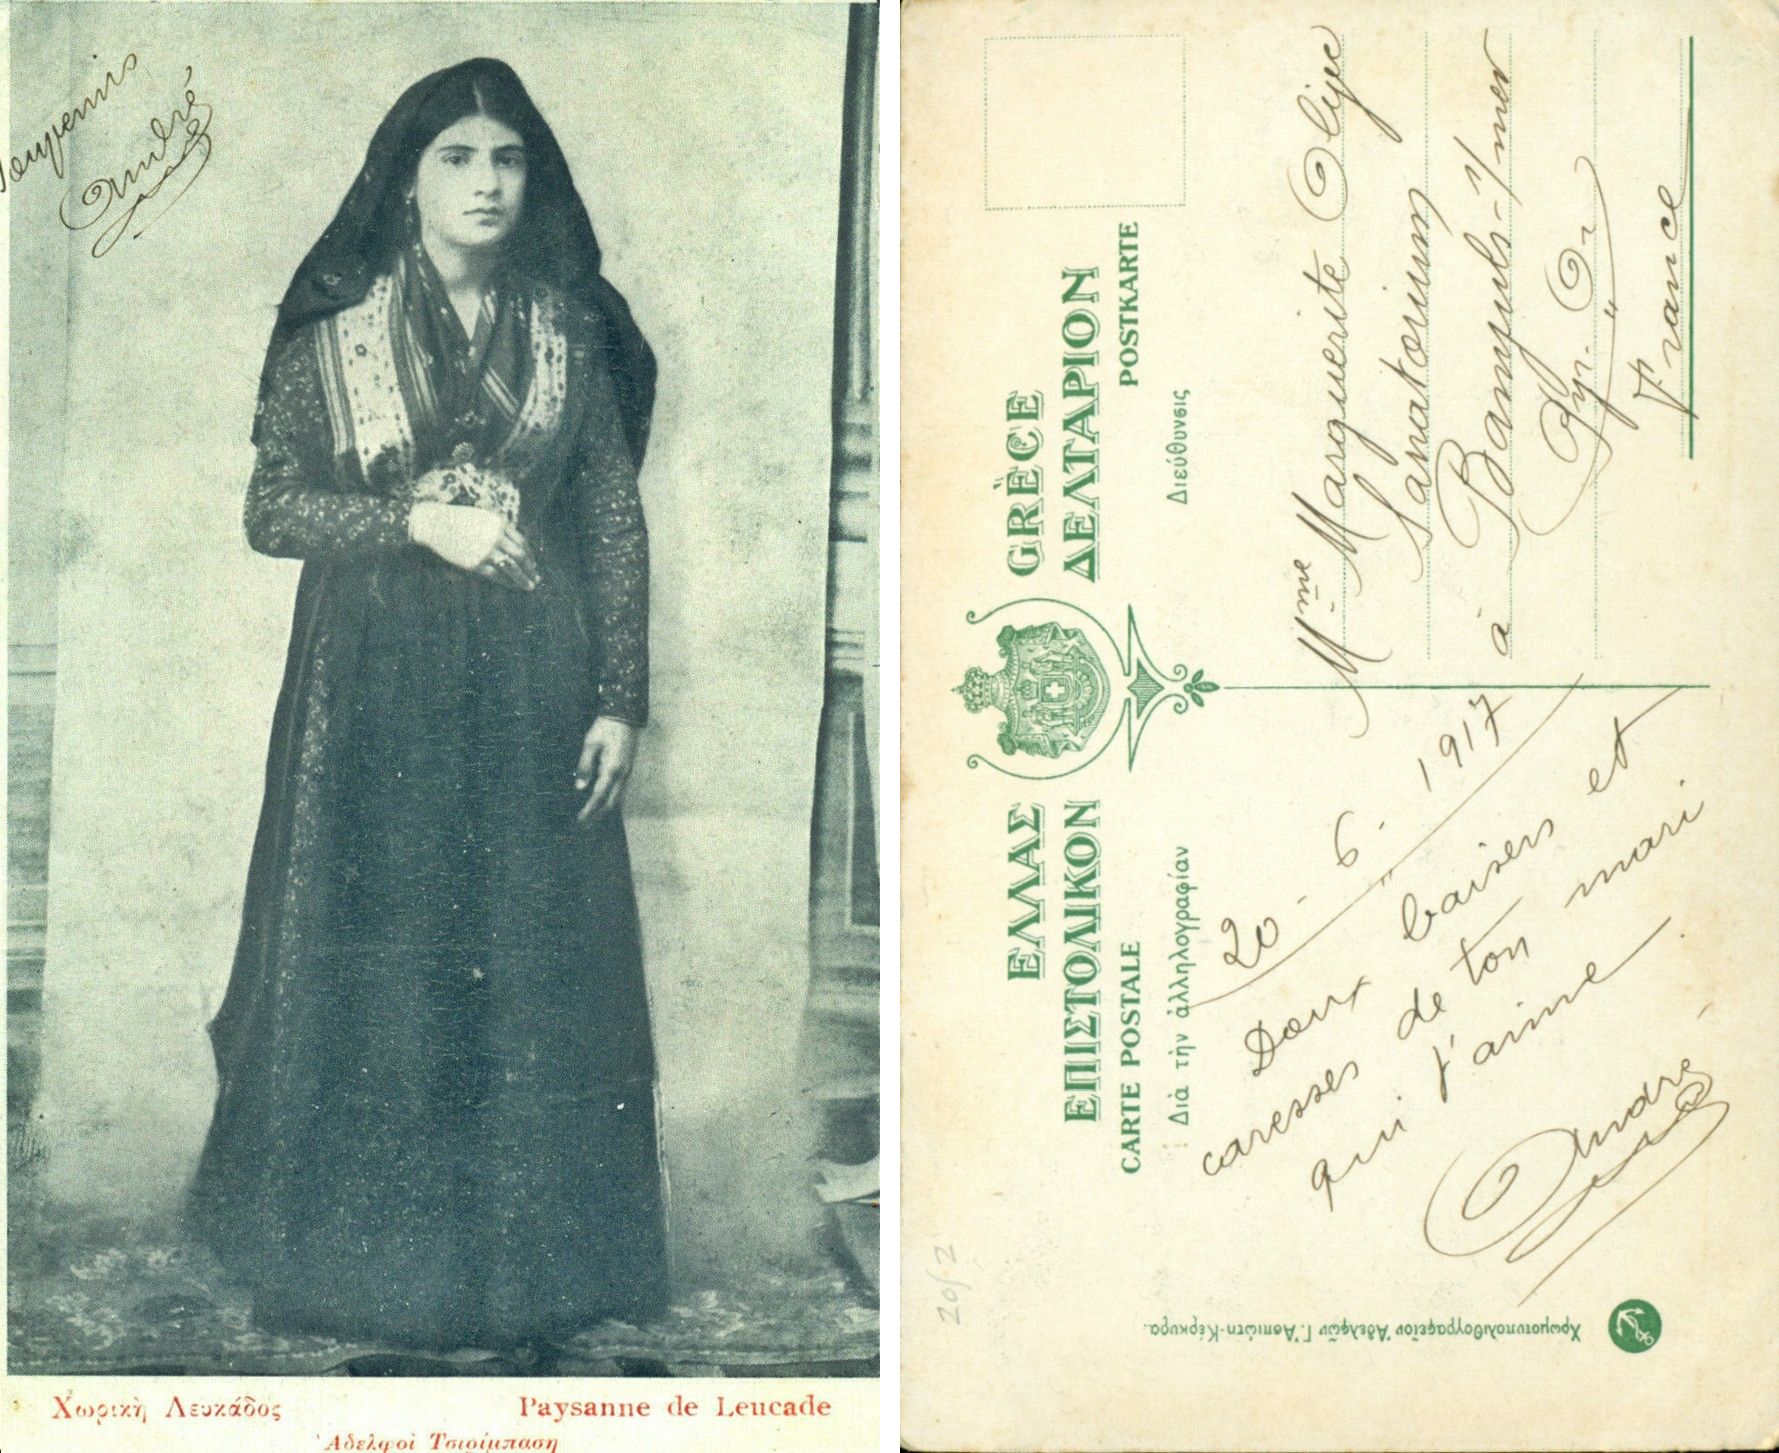 Souvenirs
André
Χωρικὴ Λευκάδος
Paysanne de Leucade
Ἀδελφοὶ Τσιρίμπαση
ΕΛΛΑΣ GRÈCE
ΕΠΙΣΤΟΛΙΚΟΝ ΔΕΛΤΑΡΙΟΝ
CARTE POSTALE POSTKARTE
Διὰ τὴν ἀλληλογραφίαν
Διεύθυνσις
20-6-1917
Doux baisers et
caresses de ton mari
qui t'aime
André
Mme Marguerite Olive
Sanatorium
à Banyuls-s/mer
Pyr. Or
France
20/2
Χρωμοτυπολιθογραφεῖον Ἀδελφῶν Γ. Ἀσπιώτη-Κέρκυρα.